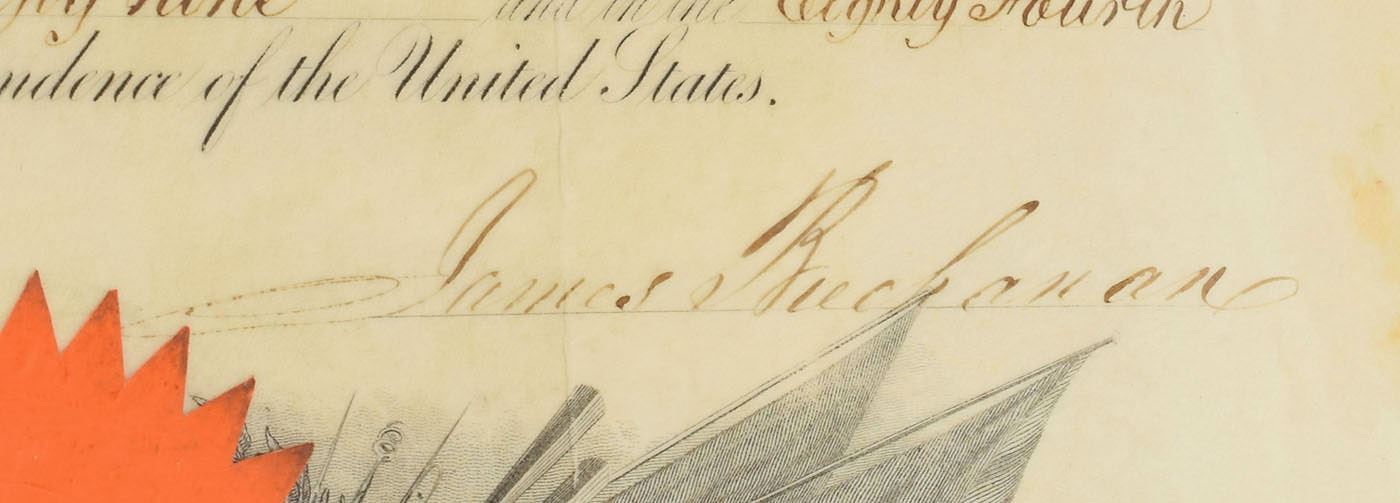 nine and in the Eighty Fourth
ndence of the United States.
James Buchanan